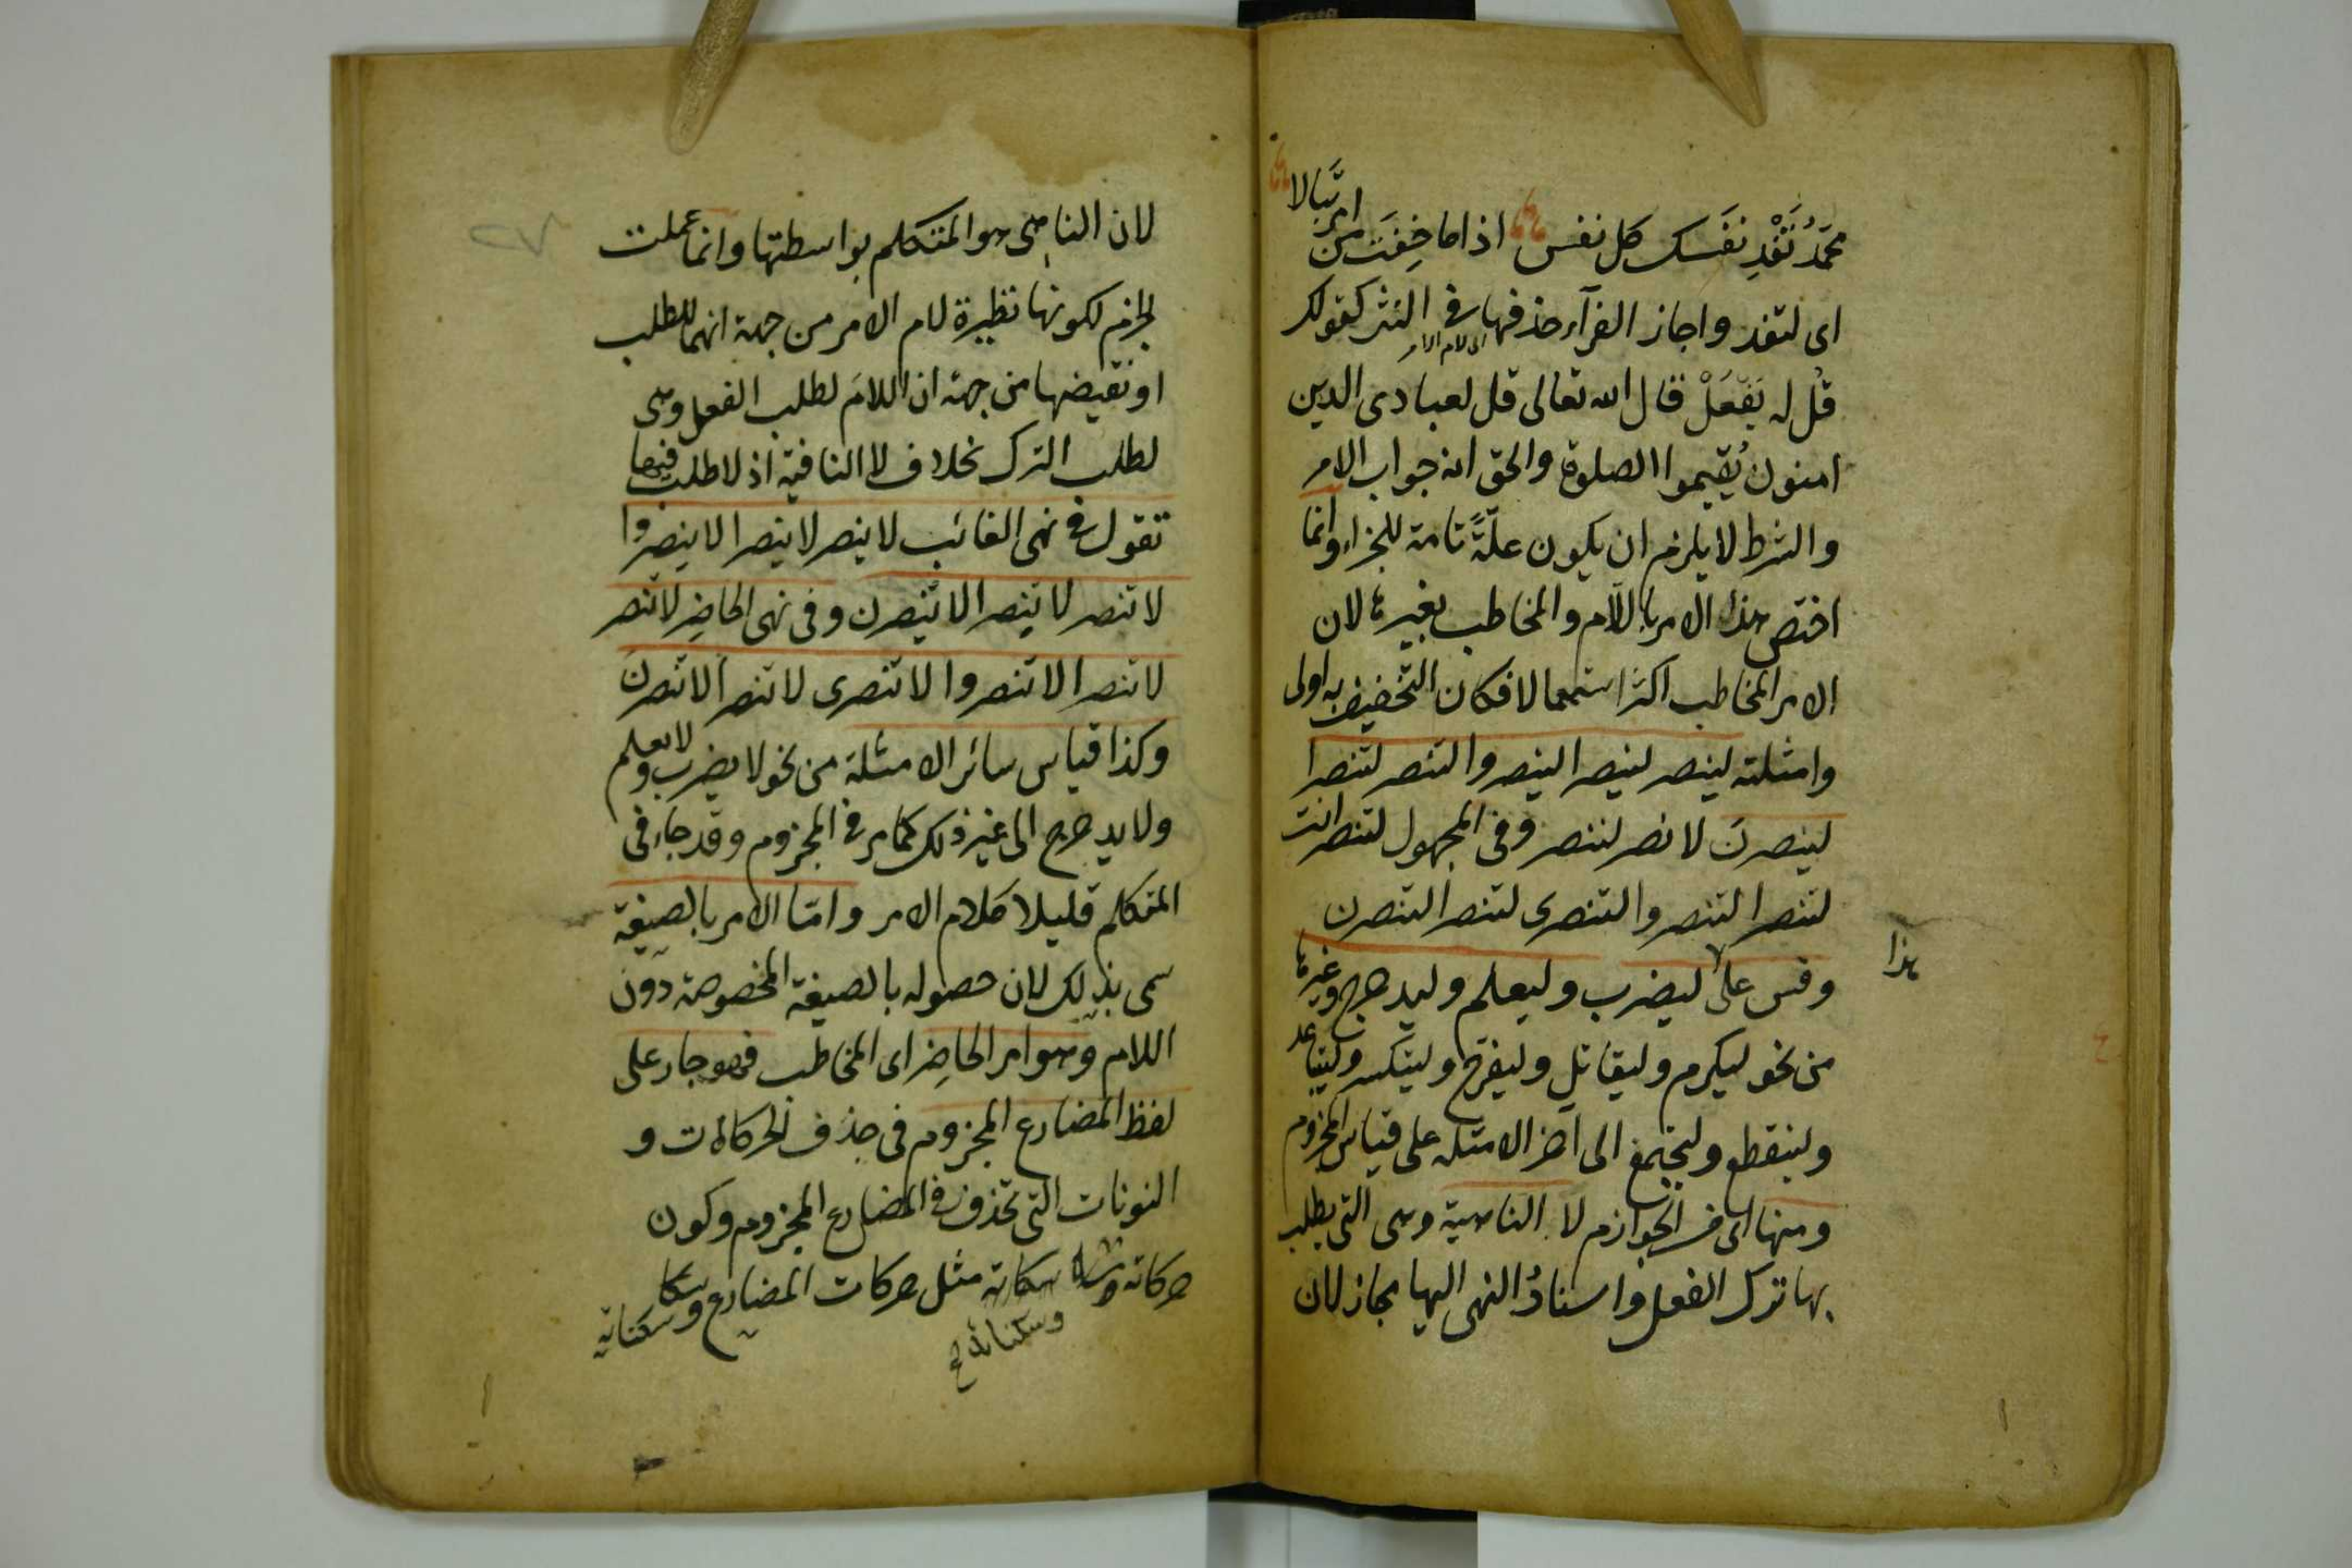 محمد تَفْدِ نفسك كل نفس اذا ما خِفْتَ من امر تبالا
اى لتفد واجاز الفرآء حذفها فى النثر كقولك
اى لام الامر
قل له يَفْعَلْ قال الله تعالى قل لعبادى الدين
امنون يُقيموا الصلوة والحق انه جواب الامر
والشرط لا يلزم ان يكون علّةً تامة للجزاء وانما
اختص هذا الامر باللام والمخاطب بغيرها لان
الامر المخاطب اكثر استعمالا فكان التخفيف به اولى
وامثلته لينصر لينصرا لينصروا لتنصر لتنصرا
لينصرن لانصر لننصر وفى المجهول لتنصر انت
لتنصرا لتنصروا لتنصرى لتنصرا لتنصرن
هذا
وقس على ليضرب وليعلم وليدحرج وغيرها
من نحو ليكرم وليقاتل وليفرح وليتكسر وليتباعد
ولينقطع وليجتمع الى آخر الامثله على قياس المجزوم
ومنها اى من الجوازم لا الناهية وهى التى يطلب
بها ترك الفعل واسنادُ النهى اليها مجاز لان
لان الناهى هو المتكلم بواسطتها وانما عملت
الجزم لكونها نظيرة لام الامر من جهة انهما للطلب
او نقيضها من جهة ان اللام لطلب الفعل وهى
لطلب الترك بخلاف لا النافية اذ لا طلب فيها
تقول فى نهى الغائب لا ينصر لا ينصرا لا ينصروا
لا تنصر لا تنصرا لا ينصرن وفى نهى الحاضر لا تنصر
لا تنصرا لا تنصروا لا تنصرى لا تنصرا لا تنصرن
وكذا قياس سائر الامثلة من نحو لا يضرب ولا يعلم
ولا يدحرج الى غير ذلك كما مر فى المجزوم وقد جاء فى
المتكلم قليلا كلام الامر وامّا الامر بالصيغة
سمى بذلك لان حصوله بالصيغة المخصوصة دون
اللام وهو امر الحاضر اى المخاطب فهو جار على
لفظ المضارع المجزوم فى حذف الحركات و
النونات التى تحذف فى المضارع المجزوم وكون
حركاته سكاته مثل حركات المضارع وسكناته
وسكناته